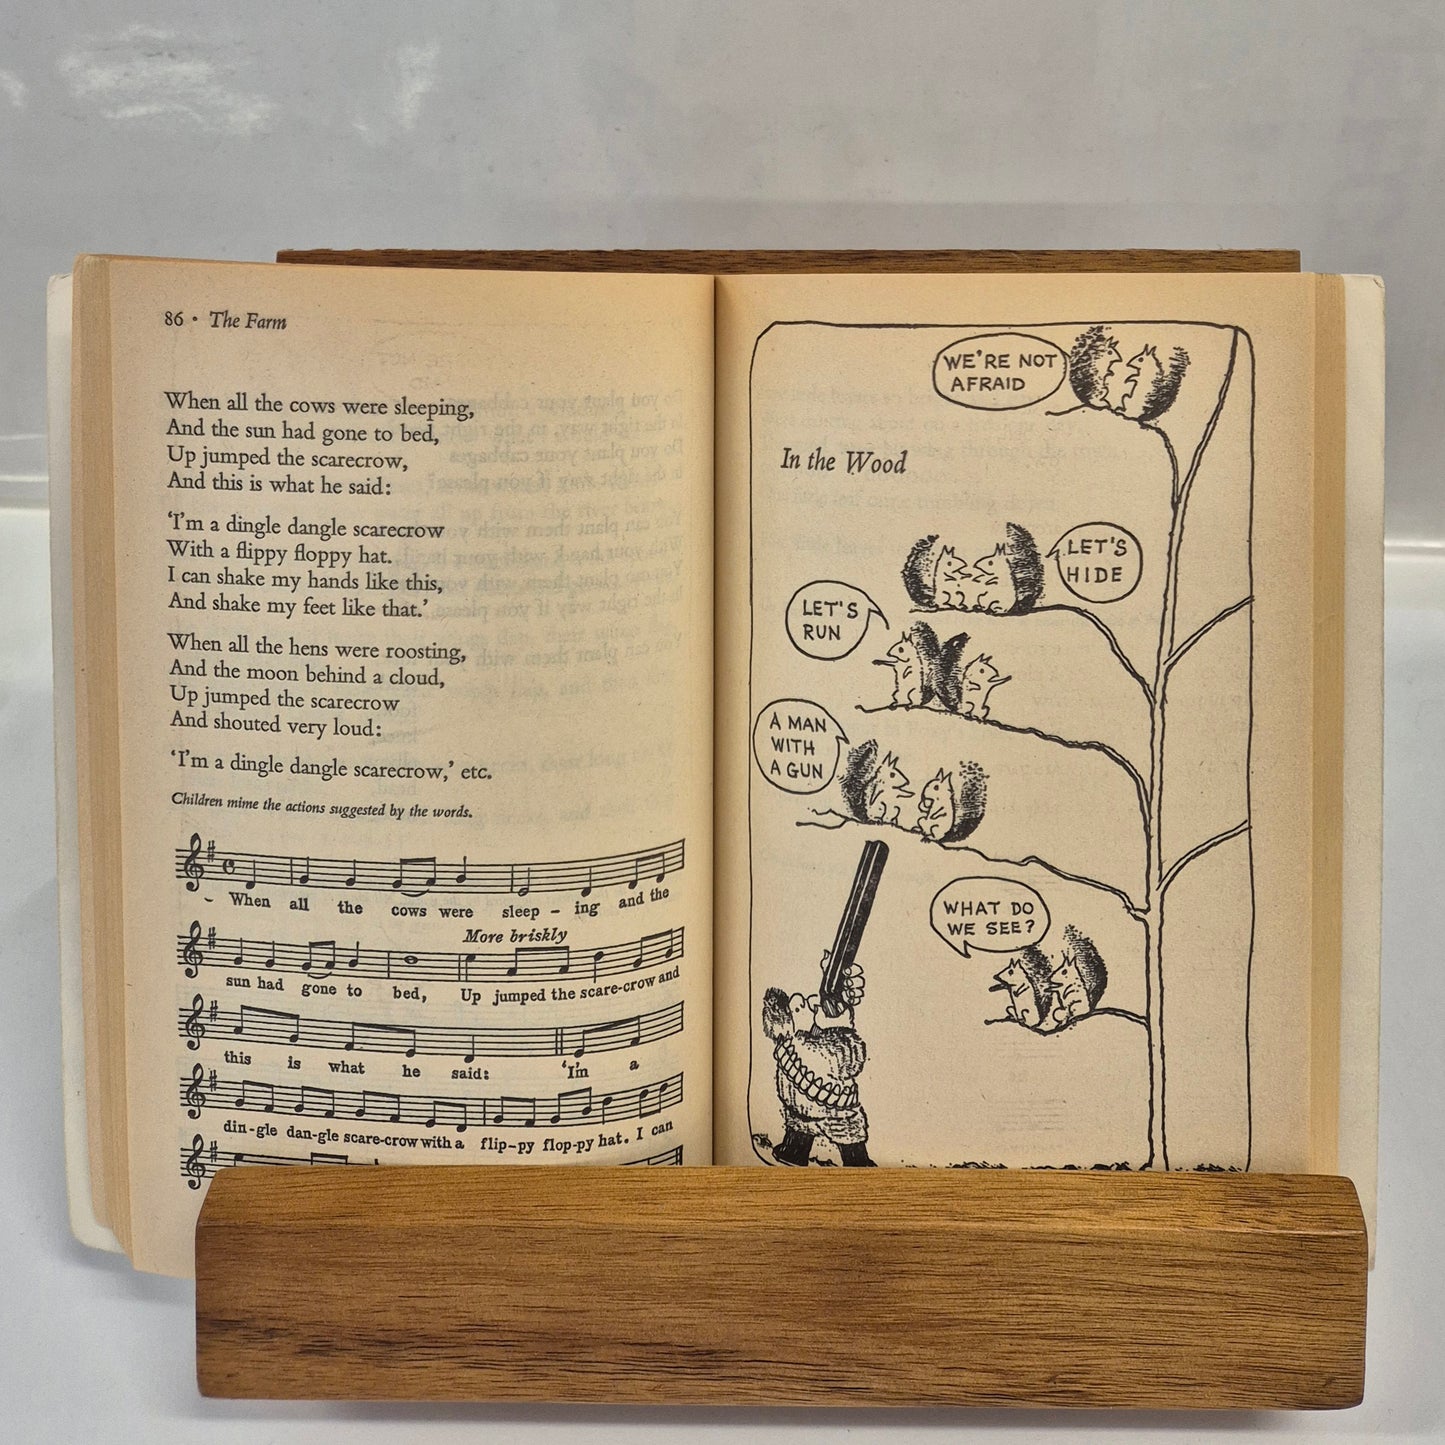 86 · The Farm
When all the cows were sleeping,
And the sun had gone to bed,
Up jumped the scarecrow,
And this is what he said:
‘I’m a dingle dangle scarecrow
With a flippy floppy hat.
I can shake my hands like this,
And shake my feet like that.’
When all the hens were roosting,
And the moon behind a cloud,
Up jumped the scarecrow
And shouted very loud:
‘I’m a dingle dangle scarecrow,’ etc.
Children mime the actions suggested by the words.
When all the cows were sleep – ing and the
More briskly
sun had gone to bed, Up jumped the scare-crow and
this is what he said: ‘I’m a
din-gle dan-gle scare-crow with a flip-py flop-py hat. I can
WE'RE NOT
AFRAID
In the Wood
LET'S
HIDE
LET'S
RUN
A MAN
WITH
A GUN
WHAT DO
WE SEE?